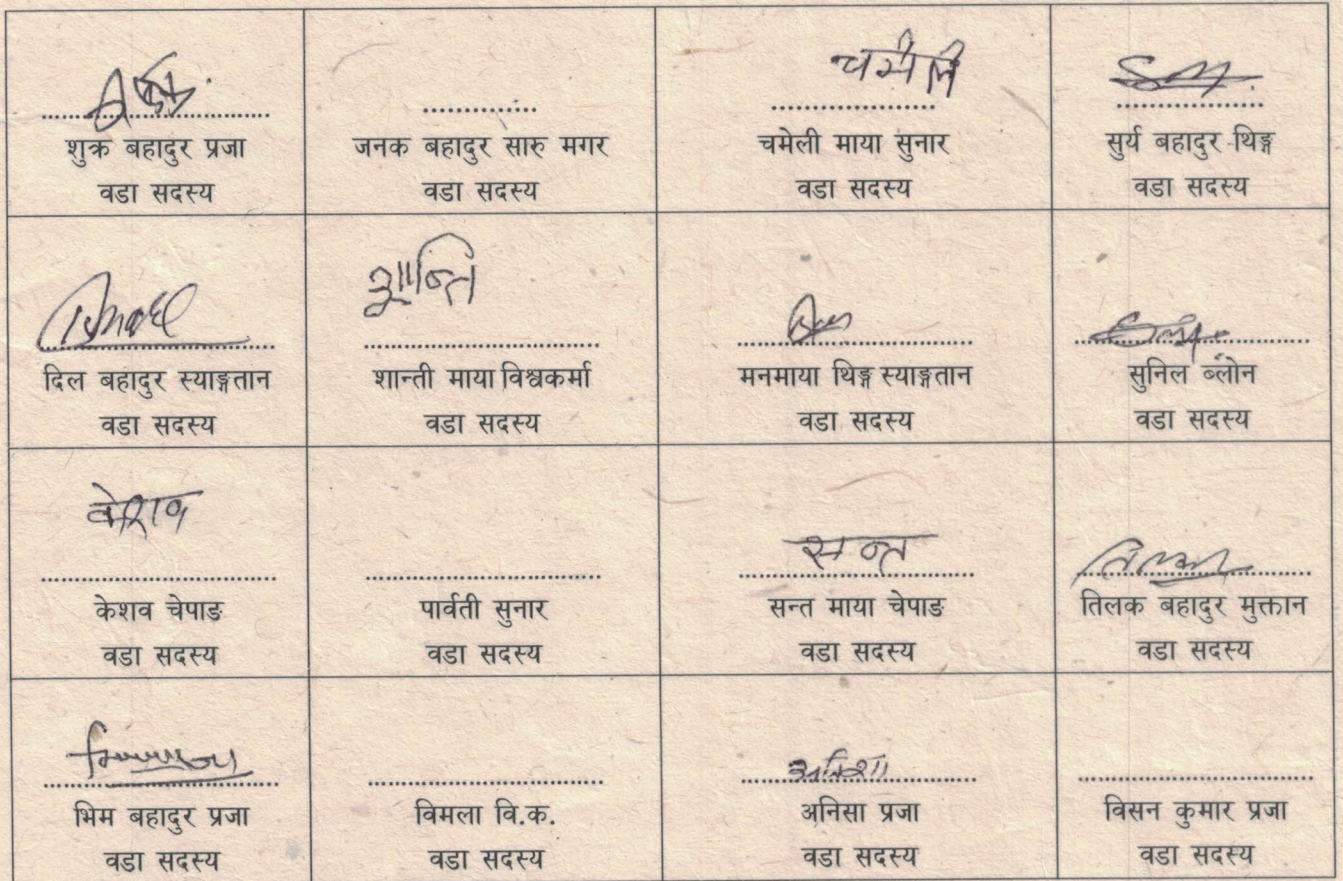 शुक्र बहादुर प्रजा
वडा सदस्य
जनक बहादुर सारु मगर
वडा सदस्य
चमेलि
चमेली माया सुनार
वडा सदस्य
सुर्य बहादुर थिङ्ग
वडा सदस्य
दिल बहादुर स्याङ्गतान
वडा सदस्य
शान्ति
शान्ती माया विश्वकर्मा
वडा सदस्य
मनमाया थिङ्ग स्याङ्गतान
वडा सदस्य
सुनिल ब्लोन
वडा सदस्य
केशव
केशव चेपाङ
वडा सदस्य
पार्वती सुनार
वडा सदस्य
सन्त
सन्त माया चेपाङ
वडा सदस्य
तिलक बहादुर मुक्तान
वडा सदस्य
भिम बहादुर प्रजा
वडा सदस्य
विमला वि.क.
वडा सदस्य
अनिशा
अनिसा प्रजा
वडा सदस्य
विसन कुमार प्रजा
वडा सदस्य